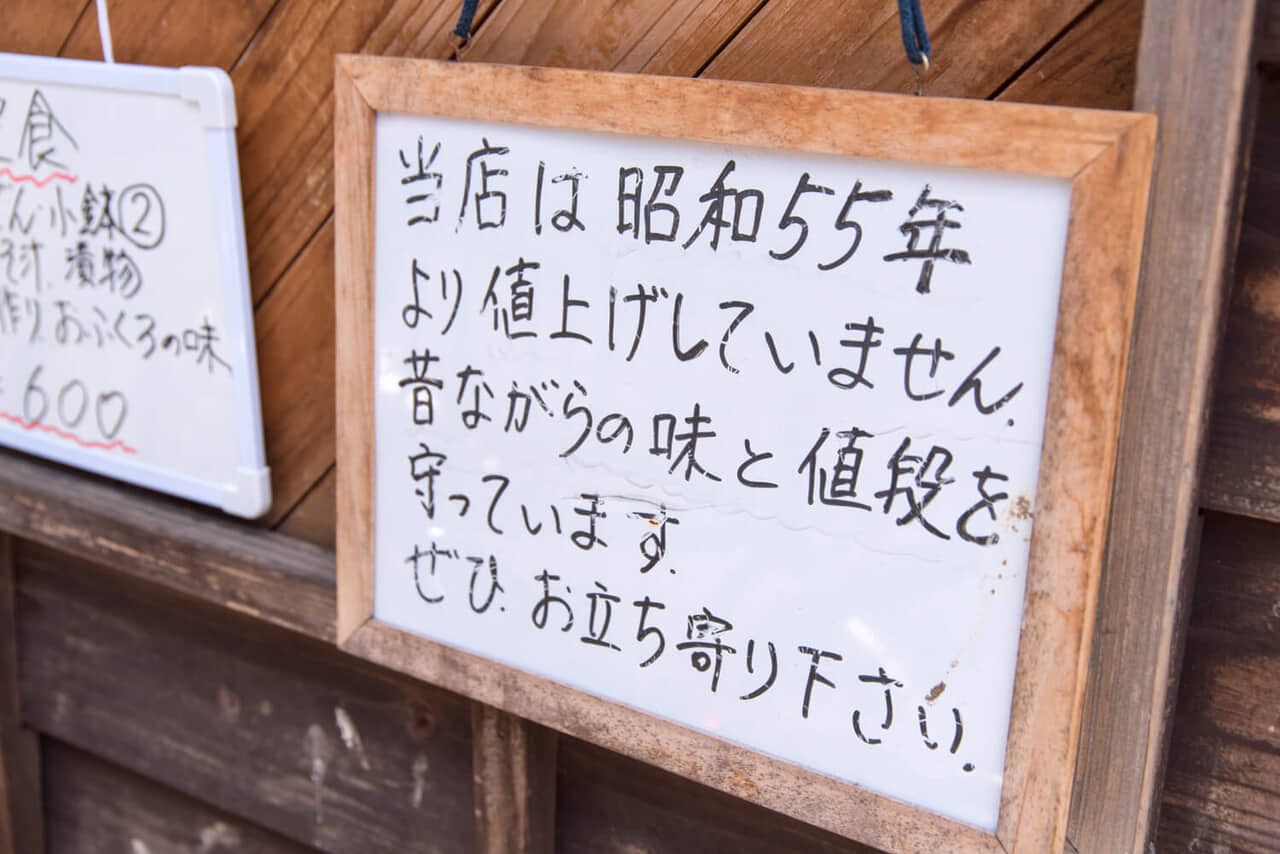 食
小鉢②
汁.漬物
作り.おふくろの味
600
当店は昭和55年
より値上げしていません.
昔ながらの味と値段を
守っています.
ぜひ.お立ち寄り下さい.